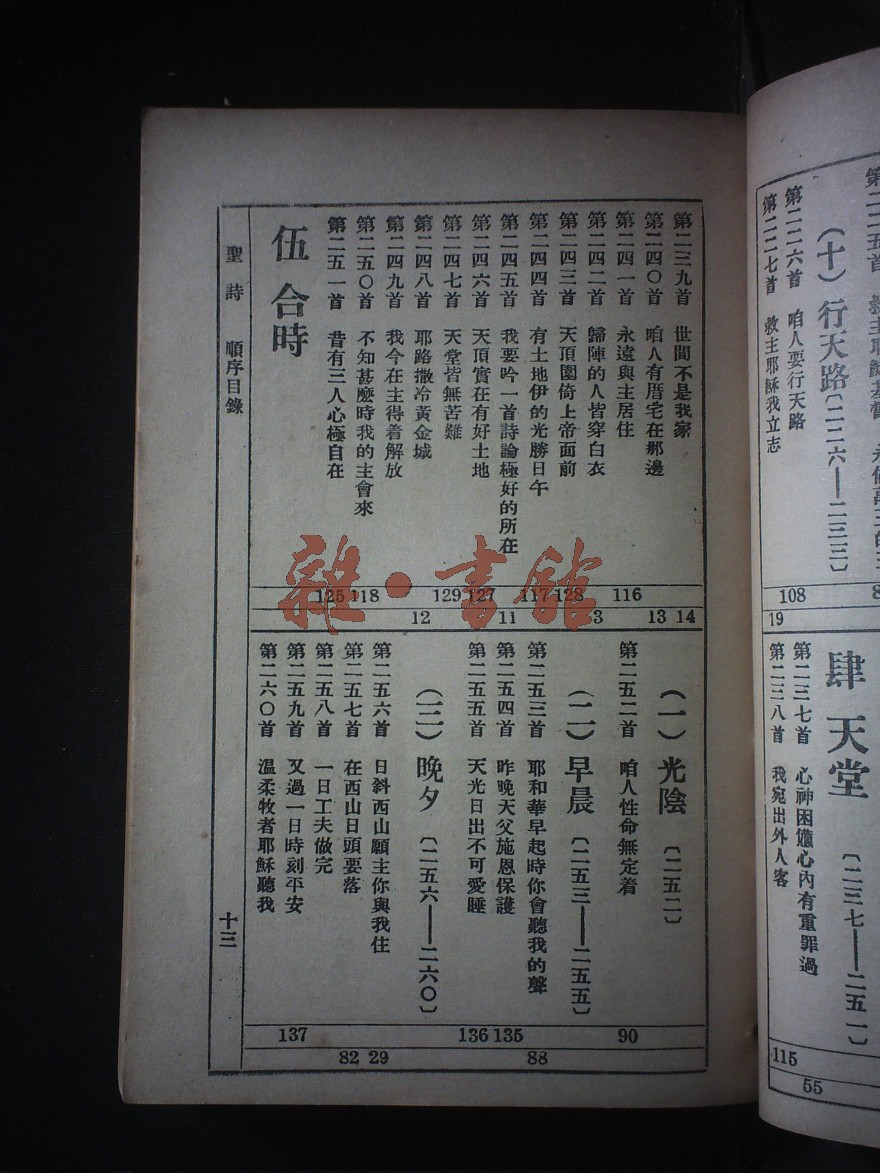 第二二六首 咱人要行天路
第二二七首 救主耶穌我立志
(十) 行天路 〔二二六——二三三〕
108
19
肆 天堂 〔二三七——二五一〕
第二三七首 心神困憊心內有重罪過
第二三八首 我宛出外人客
115
55
第二三九首 世間不是我家
第二四〇首 咱人有厝宅在那邊
第二四一首 永遠與主居住
第二四二首 歸陣的人皆穿白衣
第二四三首 天頂園倚上帝面前
第二四四首 有土地伊的光勝日午
第二四五首 我要吟一首詩論極好的所在
第二四六首 天頂實在有好土地
第二四七首 天堂皆無苦難
第二四八首 耶路撒冷黃金城
第二四九首 我今在主得着解放
第二五〇首 不知甚麼時我的主會來
第二五一首 昔有三人心極自在
伍 合時
125 118 129 127 117 128 116
12 11 13 14
(一) 光陰 〔二五二〕
第二五二首 咱人性命無定着
(二) 早晨 〔二五三——二五五〕
第二五三首 耶和華早起時你會聽我的聲
第二五四首 昨晚天父施恩保護
第二五五首 天光日出不可愛睡
(三) 晚夕 〔二五六——二六〇〕
第二五六首 日斜西山願主你與我住
第二五七首 在西山日頭要落
第二五八首 一日工夫做完
第二五九首 又過一日時刻平安
第二六〇首 溫柔牧者耶穌聽我
137 136 135 90
82 29 88
聖詩 順序目錄
十三
雜·書館